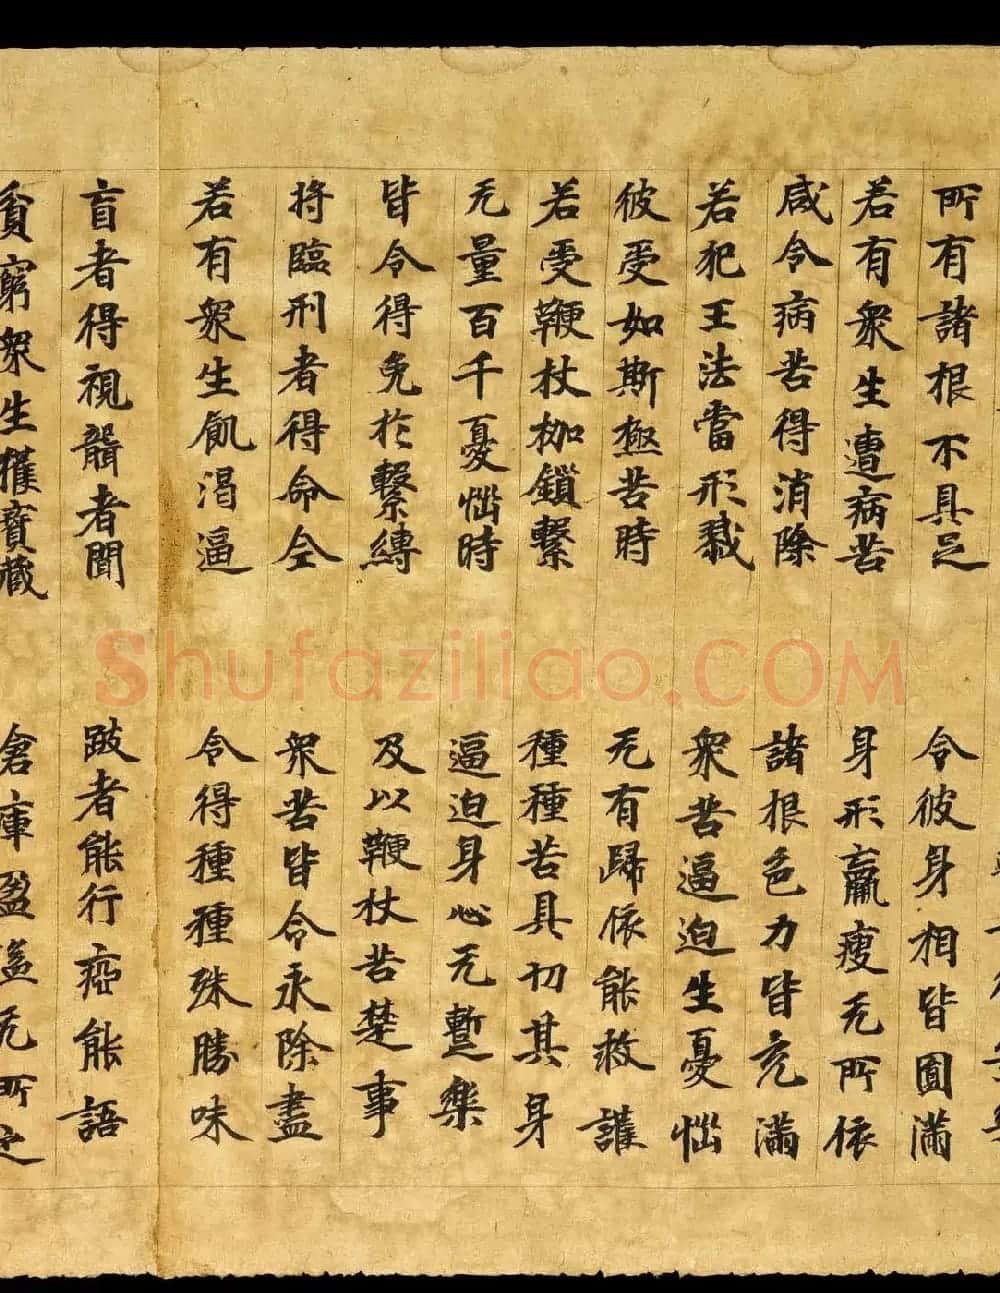 所有諸根不具足　令彼身相皆圓滿
若有衆生遭病苦　身形羸瘦无所依
咸令病苦得消除　諸根色力皆充滿
若犯王法當形戮　衆苦逼迫生憂惱
彼受如斯極苦時　无有歸依能救護
若受鞭杖枷鎖繫　種種苦具切其身
无量百千憂惱時　逼迫身心无蹔樂
皆令得免於繫縛　及以鞭杖苦楚事
將臨刑者得命全　衆苦皆令永除盡
若有衆生飢渴逼　令得種種殊勝味
盲者得視聾者聞　跛者能行瘂能語
貧窮衆生獲寶藏　倉庫盈溢无所乏
Shufaziliao.COM